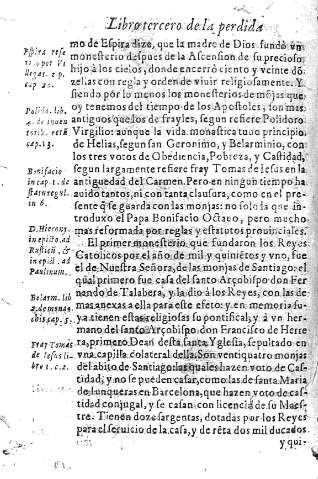 Libro tercero de la perdida
mo de Espira dize, que la madre de Dios fundò vn
monesterio despues de la Ascension de su precioso
hijo à los cielos, donde encerrò ciento y veinte dõ
zellas con regla y orden de viuir religiosamente. Y
siendo por lo menos los monesterios de mõjas que
oy tenemos del tiempo de los Apostoles, son mas
antiguos que los de frayles, segun refiere Polidoro
Virgilio: aunque la vida monastica tuuo principio
de Helias, segun san Geronimo, y Belarminio, con
los tres votos de Obediencia, Pobreza, y Castidad,
segun largamente refiere fray Tomas de Iesus en la
antiguedad del Carmen. Pero en ningun tiempo ha
auido tantos, ni con tanta clausura, como en el pre
sente q̃ se guarda con las monjas: no solo la que in
troduxo el Papa Bonifacio Octauo, pero mucho
mas reformada por reglas y estatutos prouinciales.
El primer monesterio, que fundaron los Reyes
Catolicos por el año de mil y quiniẽtos y vno, fue
el de Nuestra Señora, de las monjas de Santiago: el
qual primero fue casa del santo Arçobispo don Fer
nando de Talabera, y la dio à los Reyes, con las de
mas anexas a ella para este efeto: y en memoria su
ya tienen estas religiosas su pontifical, y à vn her
mano del santo Arçobispo don Francisco de Herre
ra, primero Dean desta santa Yglesia, sepultado en
vna capilla colateral della. Son ventiquatro monjas
del abito de Santiago: las quales hazen voto de Cas
tidad, y no se pueden casar, como las de santa Maria
de Iunqueras en Barcelona, que hazen voto de cas
tidad conjugal, y se casan con licencia de su Maes
tre. Tienen doze sargentas, dotadas por los Reyes
para el seruicio de la casa, y de rẽta dos mil ducados
y qui-
Polido. lib.
cap. 13.
Bonifacio
in cap. 1. de
in 6.
D. Hierony.
in epist. ad
Rustic. &
in epist. ad
Paulinum.
Belarm. lib
cap. 5.
Fray Tomas
de Iesus li
bro 1. c. 2.